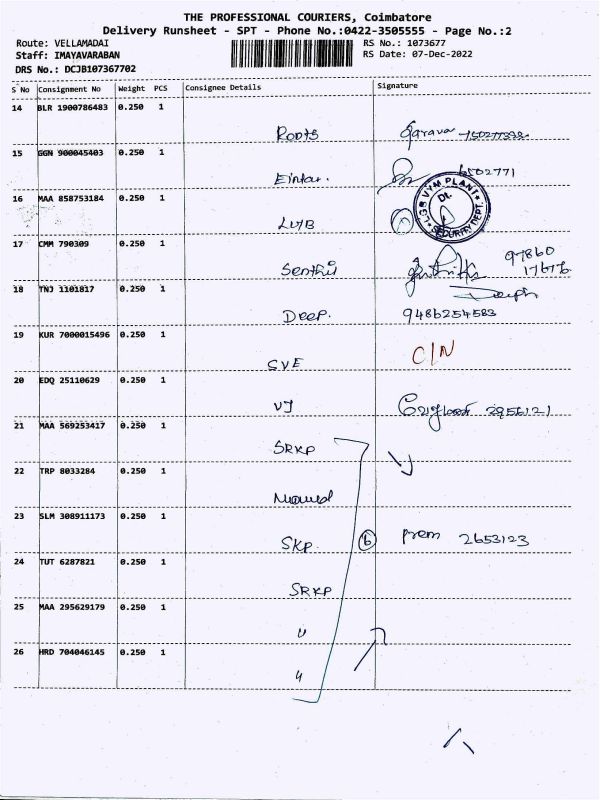 THE PROFESSIONAL COURIERS, Coimbatore
Delivery Runsheet - SPT - Phone No.:0422-3505555 - Page No.:2
Route: VELLAMADAI
RS No.: 1073677
Staff: IMAYAVARABAN
RS Date: 07-Dec-2022
DRS No.: DCJB107367702
S No Consignment No Weight PCS Consignee Details Signature
14 BLR 1900786483 0.250 1
Roots
15 GGN 900045403 0.250 1
6502771
16 MAA 858753184 0.250 1
LGB VYM PLANT
Dt.
SECURITY DEPT.
17 CMM 790309 0.250 1
Senthil
97860
17676
18 TNJ 1101817 0.250 1
Deep
Deep. 9486254583
19 KUR 7000015496 0.250 1
SVE C/N
20 EDQ 25110629 0.250 1
VJ 2956121
21 MAA 569253417 0.250 1
SRKP
22 TRP 8033284 0.250 1
23 SLM 308911173 0.250 1
SKP. 6 Prem 2653123
24 TUT 6287821 0.250 1
SRKP
25 MAA 295629179 0.250 1
"
26 HRD 704046145 0.250 1
"